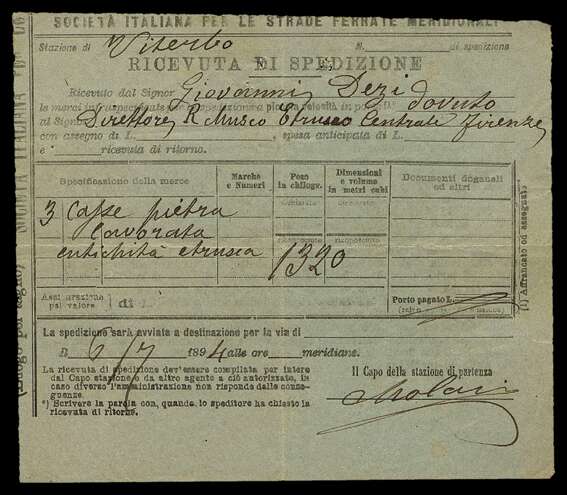 SOCIETÀ ITALIANA PER LE STRADE FERRATE MERIDIONALI
Stazione di Viterbo N. di spedizione
RICEVUTA DI SPEDIZIONE
Ricevuto dal Signor Giovanni Dezi
le merci infrascritte in porto dovuto
al Signor Direttore R Museo Etrusco Centrale Firenze
con assegno di L. spesa anticipata di L.
e ricevuta di ritorno.
Specificazione della merce
Marche e Numeri
Peso in chilogr.
Dimensioni e volume in metri cubi
Documenti doganali ed altri
3 Casse pietra
lavorata
antichità etrusca 1320
Assicurazione pel valore di L.
Porto pagato L.
(1) Affrancato od assegnato.
La spedizione sarà avviata a destinazione per la via di
6/7 1894 alle ore meridiane.
La ricevuta di spedizione dev'essere compilata per intero
dal Capo stazione o da altro agente a ciò autorizzato, in
caso diverso l'amministrazione non risponde delle conse-
guenze.
*) Scrivere la parola con, quando lo speditore ha chiesto la
ricevuta di ritorno.
Il Capo della stazione di partenza
(Luogo pel bagno)
SOCIETÀ ITALIANA PER